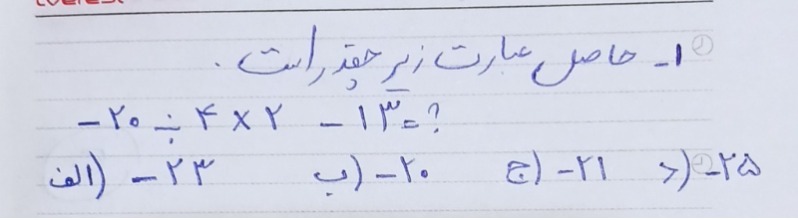 ۱- حاصل عبارت زیر چقدر است.
-۲۰ ÷ ۴ × ۲ - ۱۳ = ?
الف) -۲۳ ب) -۲۰ ج) -۲۱ د) -۲۵